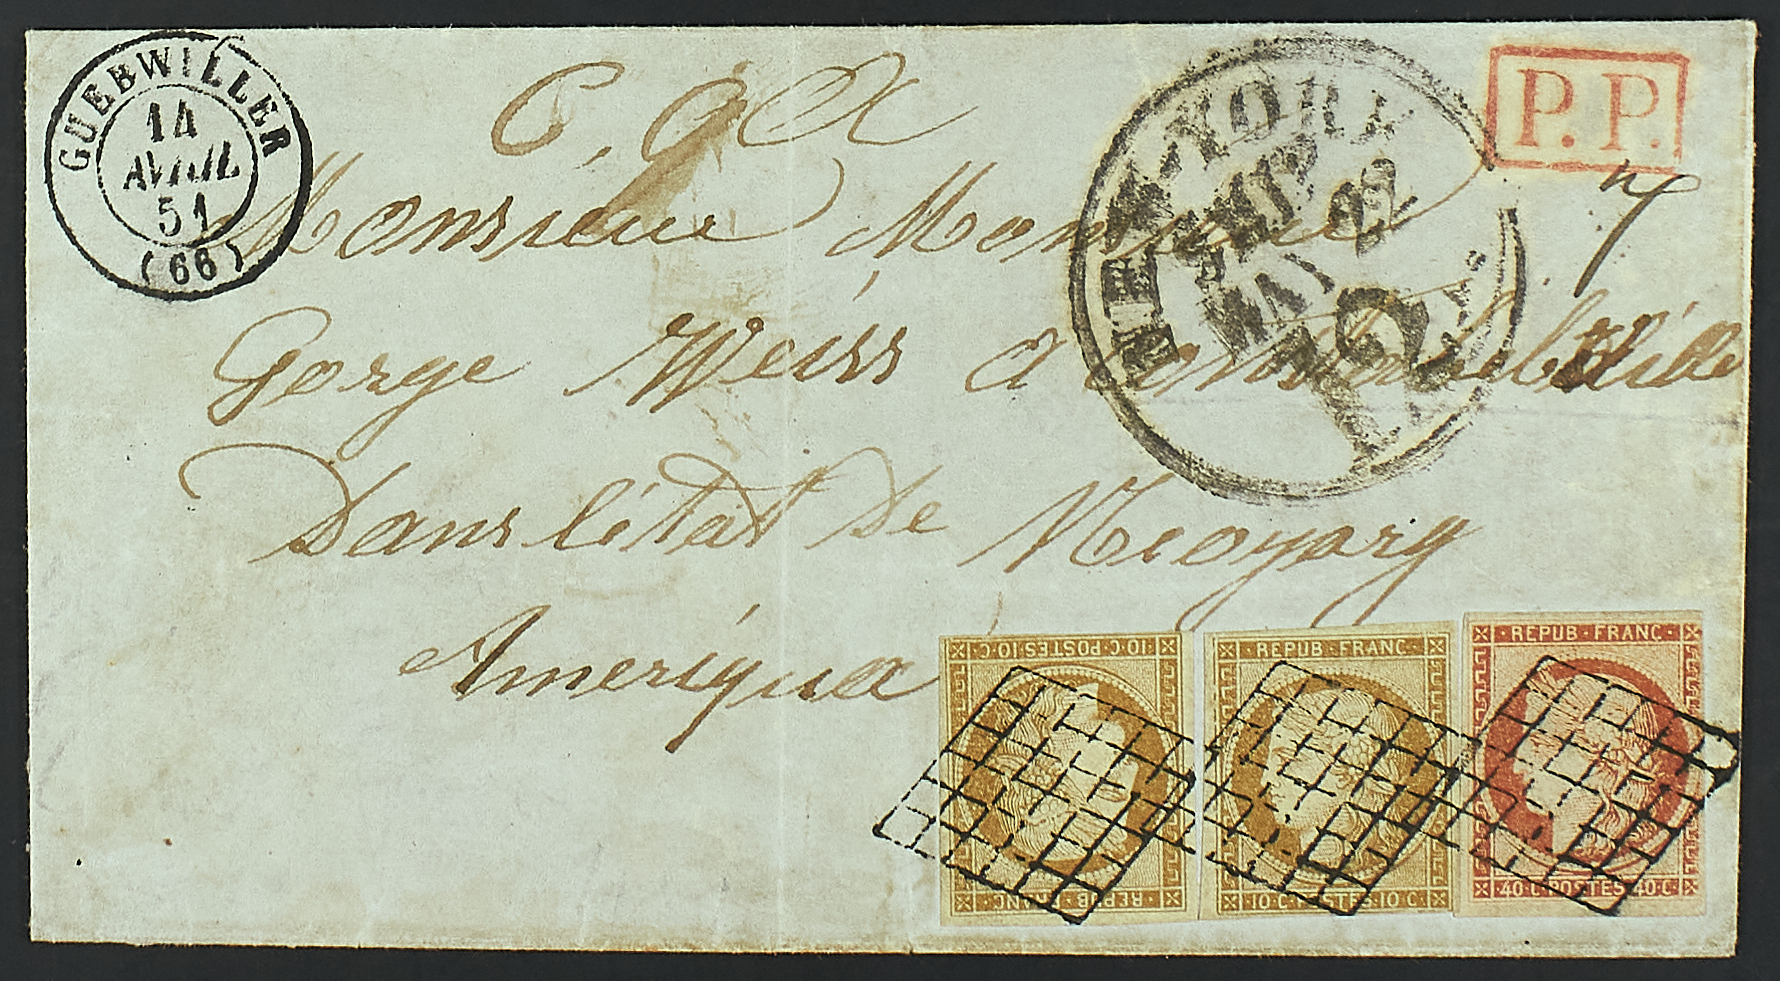 GUEBWILLER
14
AVRIL
51
(66)
NEW-YORK
SHIP
MAY
cts
P.P.
Monsieur Monsieur
Gorge Weiss a
Dans l'état de Neoyorg
Ameriqua
10·C·POSTES·10·C·
REPUB·FRANC·
REPUB·FRANC·
10·C·POSTES·10·C·
REPUB·FRANC·
40·C·POSTES·40·C·